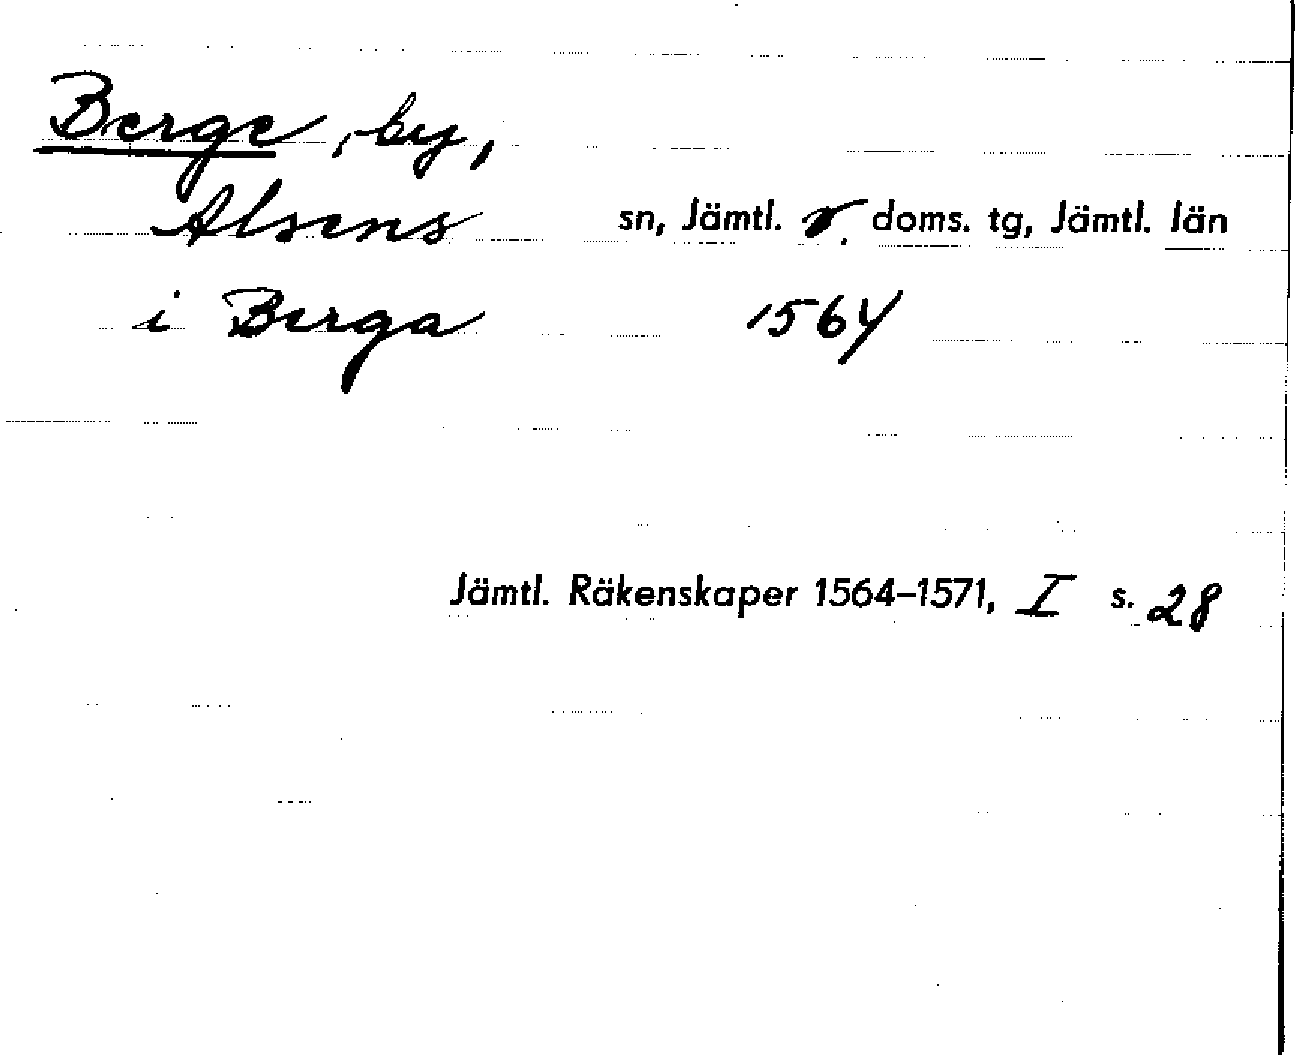 Berge, by,
Alsens sn, Jämtl. v. doms. tg, Jämtl. län
i Berga 1564
Jämtl. Räkenskaper 1564–1571, I s. 28